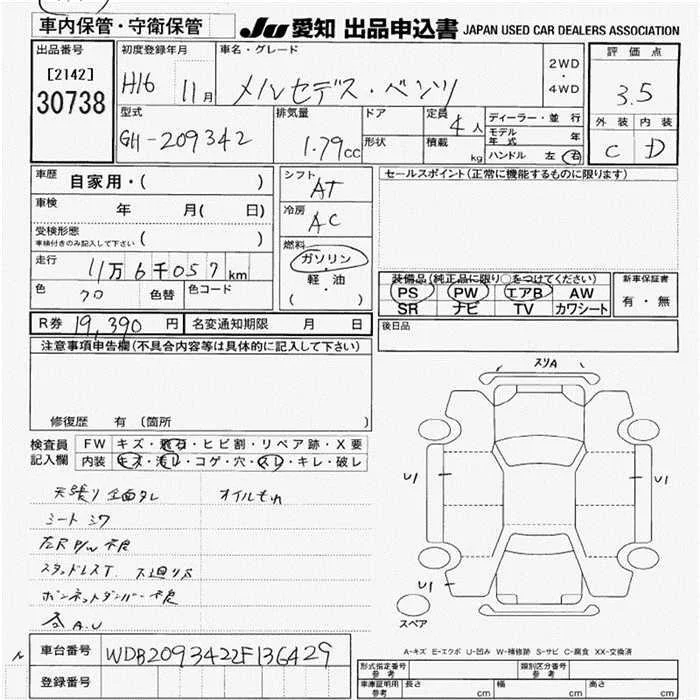 車内保管・守衛保管
JU 愛知 出品申込書 JAPAN USED CAR DEALERS ASSOCIATION
出品番号
[2142]
30738
初度登録年月
H16 11月
車名・グレード
メルセデス・ベンツ
2WD
・
4WD
評価点
3.5
外装 内装
C D
型式
GH-209342
排気量
1.79cc
ドア
形状
定員 4人
積載 kg
ディーラー・並行
モデル年式 年
ハンドル 左・右
車歴 自家用・( )
車検 年 月( 日)
受検形態
車検付きのみ記入して下さい ( )
走行 11万6千057km
色 クロ 色替 色コード
シフト
AT
冷房
AC
燃料
ガソリン
・
軽油
( ・ )
セールスポイント(正常に機能するものに限ります)
装備品(純正品に限り○をつけてください)
PS PW エアB AW
SR ナビ TV カワシート
新車保証書
有・無
後日品
R券 19,390円 名変通知期限 月 日
注意事項申告欄(不具合内容等は具体的に記入して下さい)
修復歴 有 (箇所
検査員記入欄
FW キズ・飛石・ヒビ割・リペア跡・X要
内装 キズ・汚レ・コゲ・穴・スレ・キレ・破レ
天張り全面タレ オイルもれ
シートシワ
左R P/W不良
スタッドレスT. 下廻りS
ボンネットダンパー不良
各A.U
スリA
U1
U1
U1
スペア
A-キズ E-エクボ U-凹み W-補修跡 S-サビ C-腐食 XX-交換済
車台番号 WDB2093422F136429
登録番号
型式指定番号 参考
類別区分番号 参考
車庫証明用 参考 長さ cm 幅 cm 高さ cm